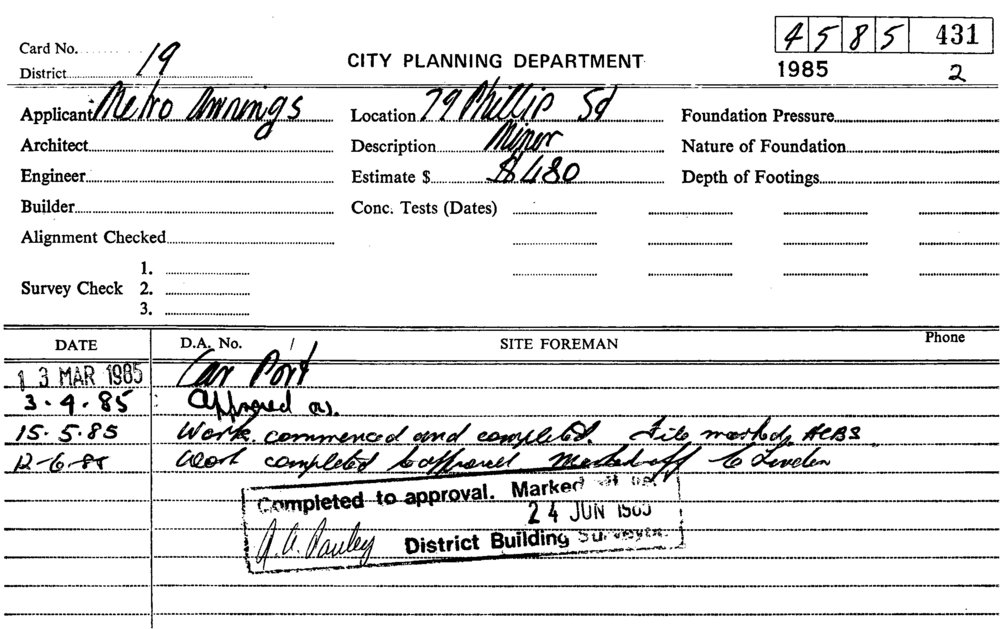 4 5 8 5 431
Card No. 19
CITY PLANNING DEPARTMENT
1985 2
District
Applicant Metro Awnings Location 79 Phillip Sd Foundation Pressure
Architect Description Minor Nature of Foundation
Engineer Estimate $ $480 Depth of Footings
Builder Conc. Tests (Dates)
Alignment Checked
1.
Survey Check 2.
3.
DATE D.A. No. / SITE FOREMAN Phone
13 MAR 1985 Car Port
3.4.85 Approved
15.5.85 Work commenced and completed. File marked
12-6-85 Work completed to approval Marked off
Completed to approval. Marked
24 JUN 1985
District Building Surveyor